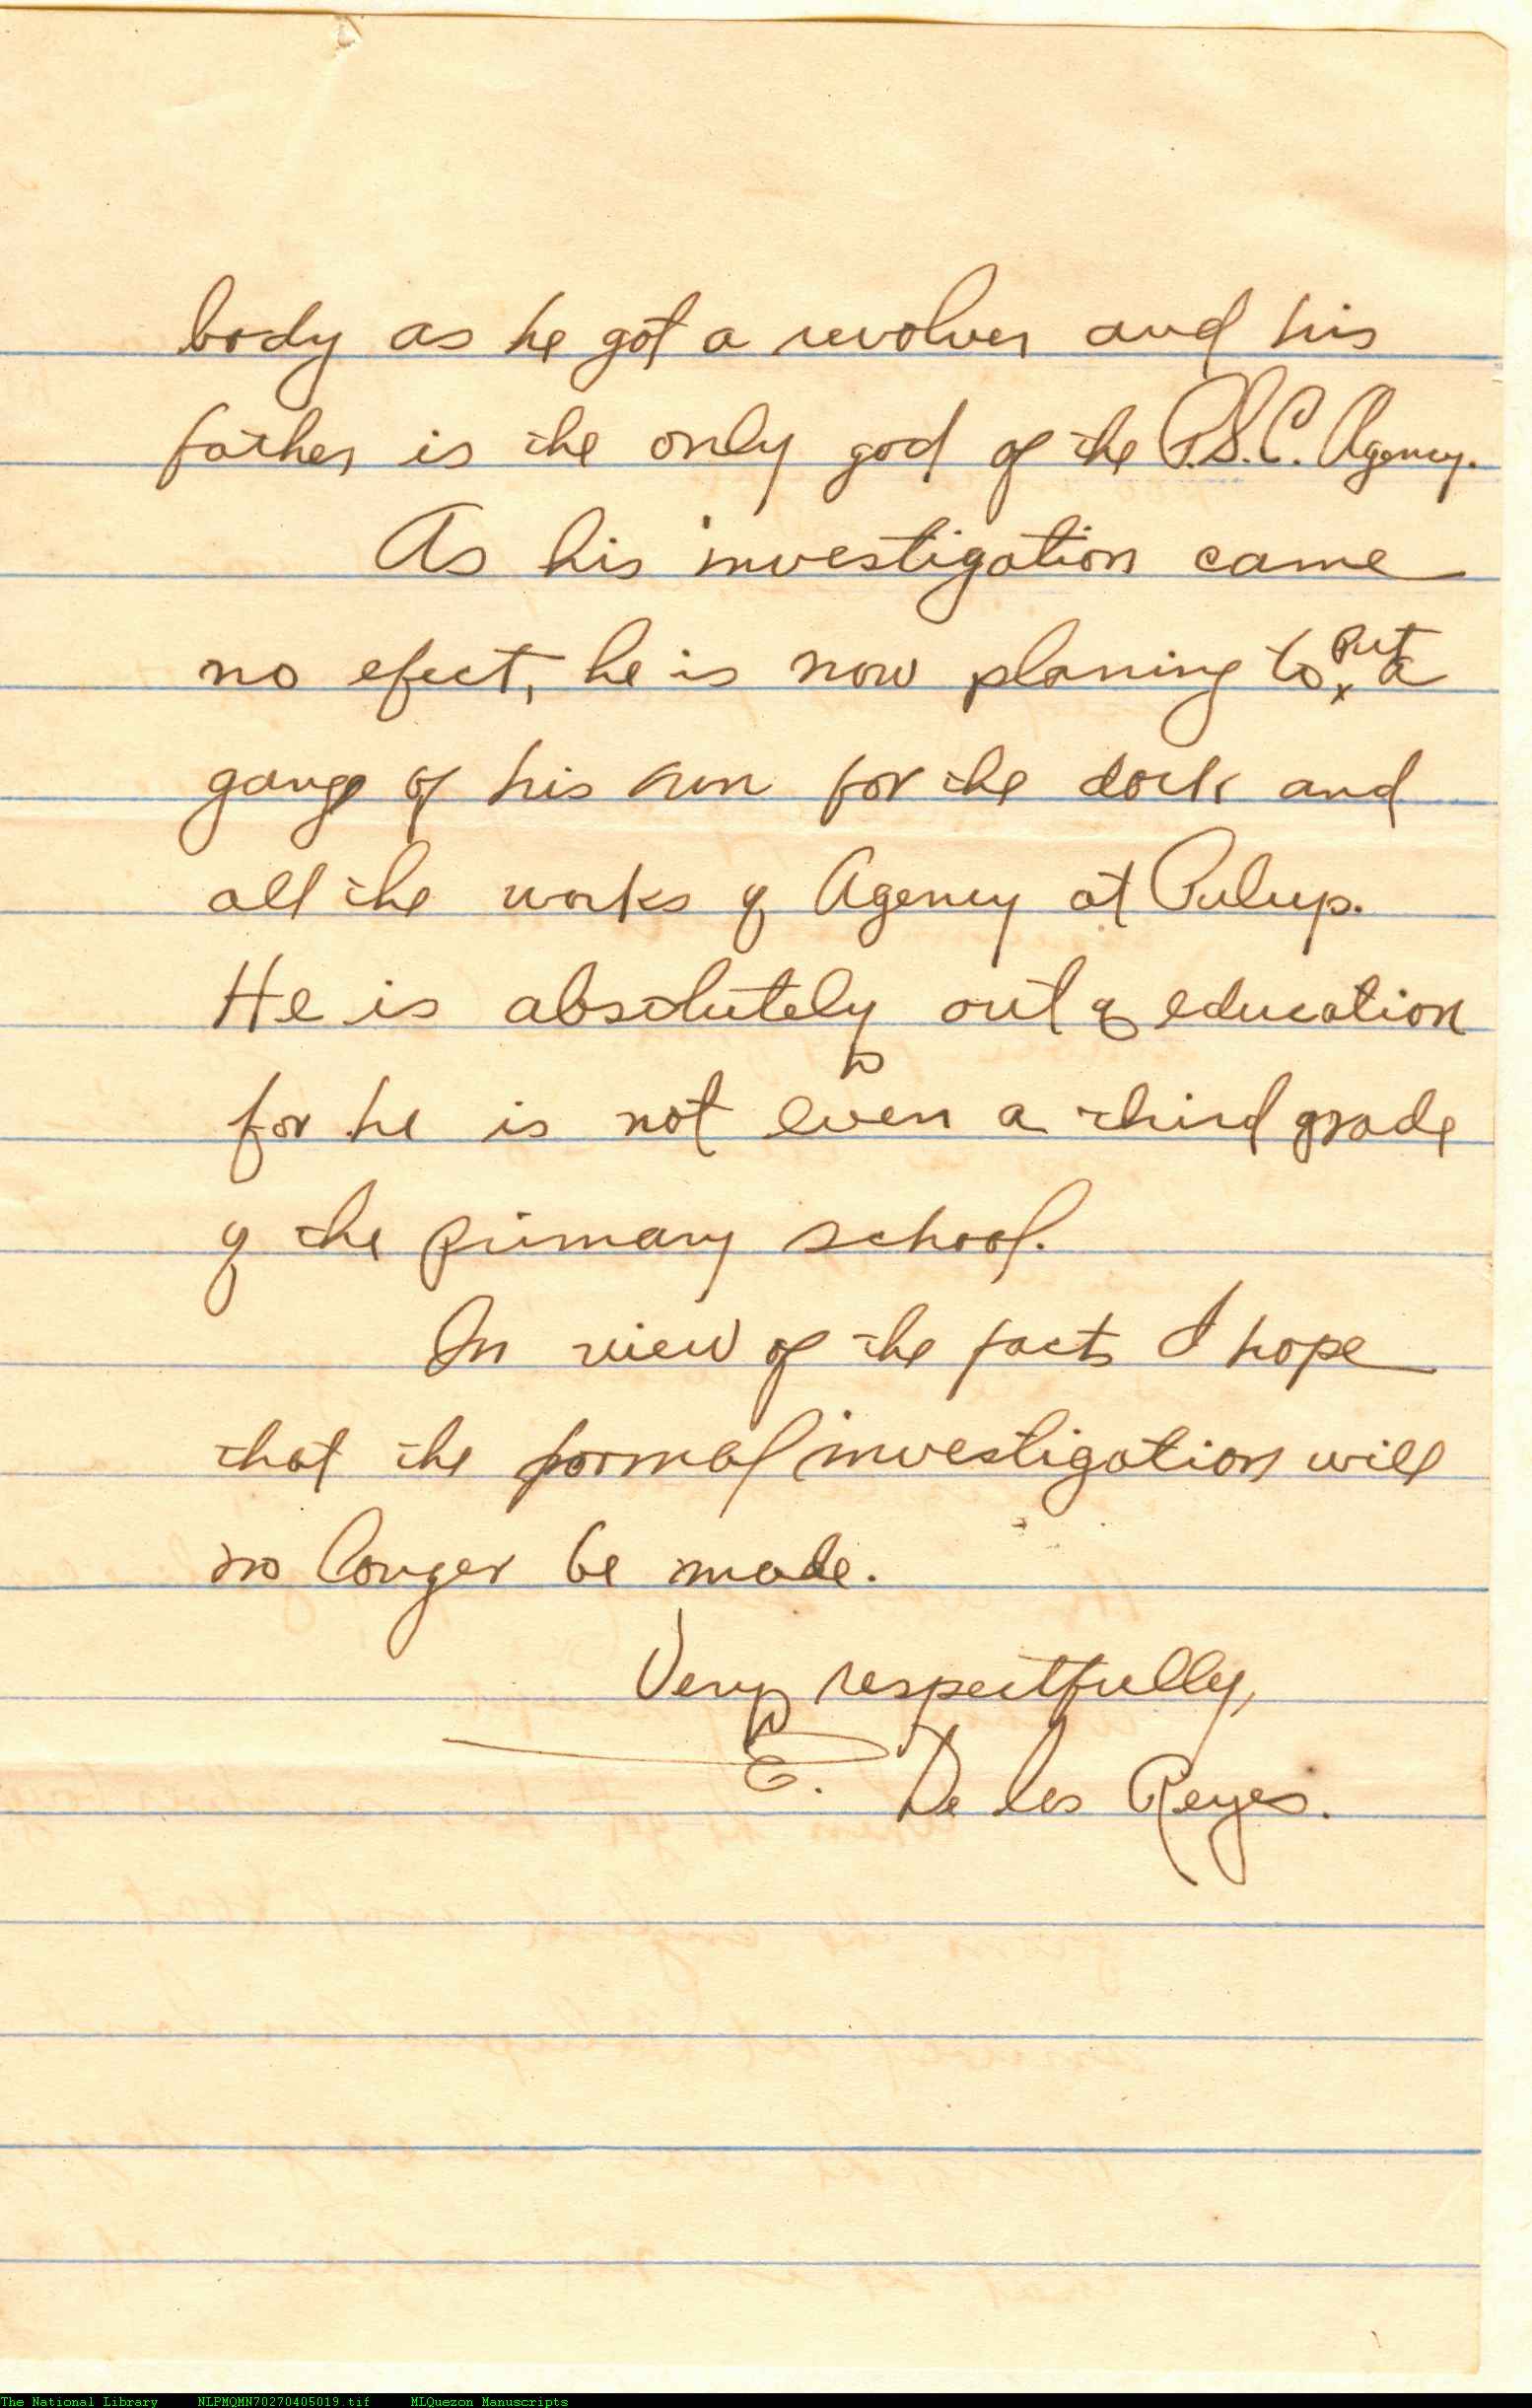 body as he got a revolver and his
father is the only god of the P.S.C. Agency.
As his investigation came
no efect, he is now planing to put a
x
gange of his own for the dock and
all the works of Agency at Pulup.
He is absolutely out of education
for he is not even a third grade
of the primary school.
In view of the facts I hope
that the formal investigation will
no longer be made.
Very respectfully,
E. De los Reyes.
The National Library NLPMQMN70270405019.tif MLQuezon Manuscripts